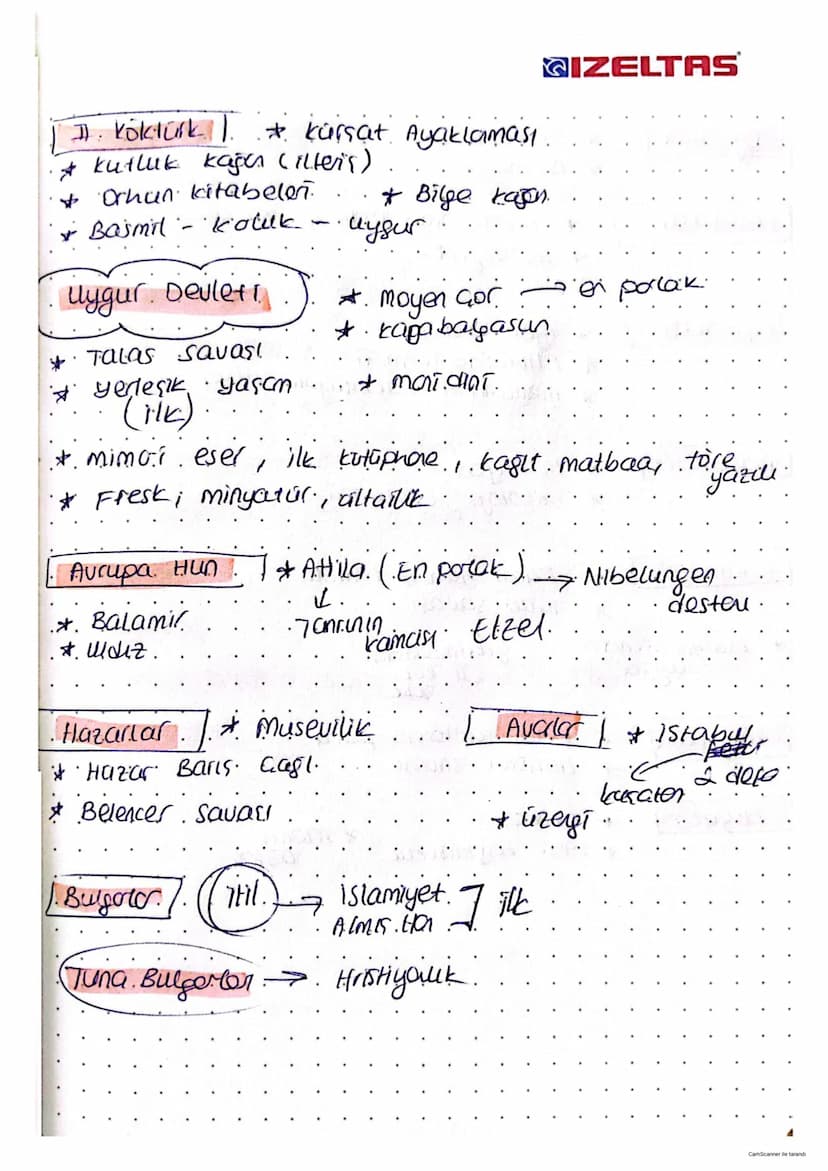 IZELTAS
II. Köktürk * Kürşat Ayaklaması
* Kutluk Kağan (ilteriş)
* Orhun kitabeleri * Bilge Kağan
* Basmil - Kalluk - Uygur
Uygur Devleti * Moyen Çor → en parlak
* Karabalgasun
* TALAS savası
* yerleşik yaşam * mani dini
(ilk)
* mimari eser, ilk kütüphane, kağıt matbaa, töre
yazılı
* Fresk, minyatür, ciltcilik
Avrupa Hun * Attila (En parlak) → Nibelungen
destanı
* Balamir Tanrının kamcısı Etzel
* Uldız
Hazarlar * Musevilik Avarlar * istabul
* Hazar Barış Çagı 2 defa
kuşatan
* Belencer savası * üzengi
Bulgarlar itil → islamiyet ilk
Almış Han
Tuna Bulgarları → Hristiyanlık
4
CamScanner ile tarandı